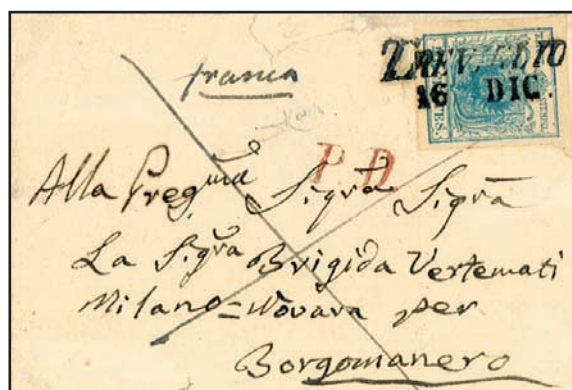 franca
TREVEDIO
16 DIC.
P. D.
Alla Preg.ma Sigra Sigra
La Sigra Brigida Vertemati
Milano=Novara per
Borgomanero